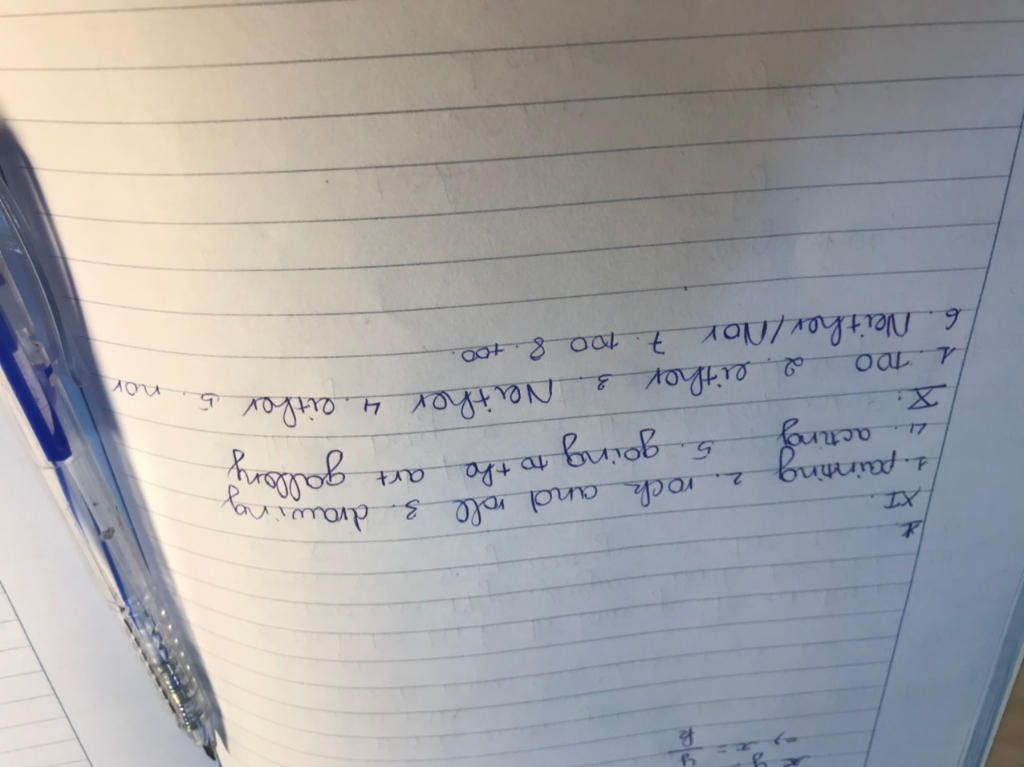 XI.
1. painting 2. rock and roll 3. drawing
4. acting 5. going to the art gallery
X.
1. too 2. either 3. Neither 4. either 5. nor
6. Neither/Nor 7. too 8. too.